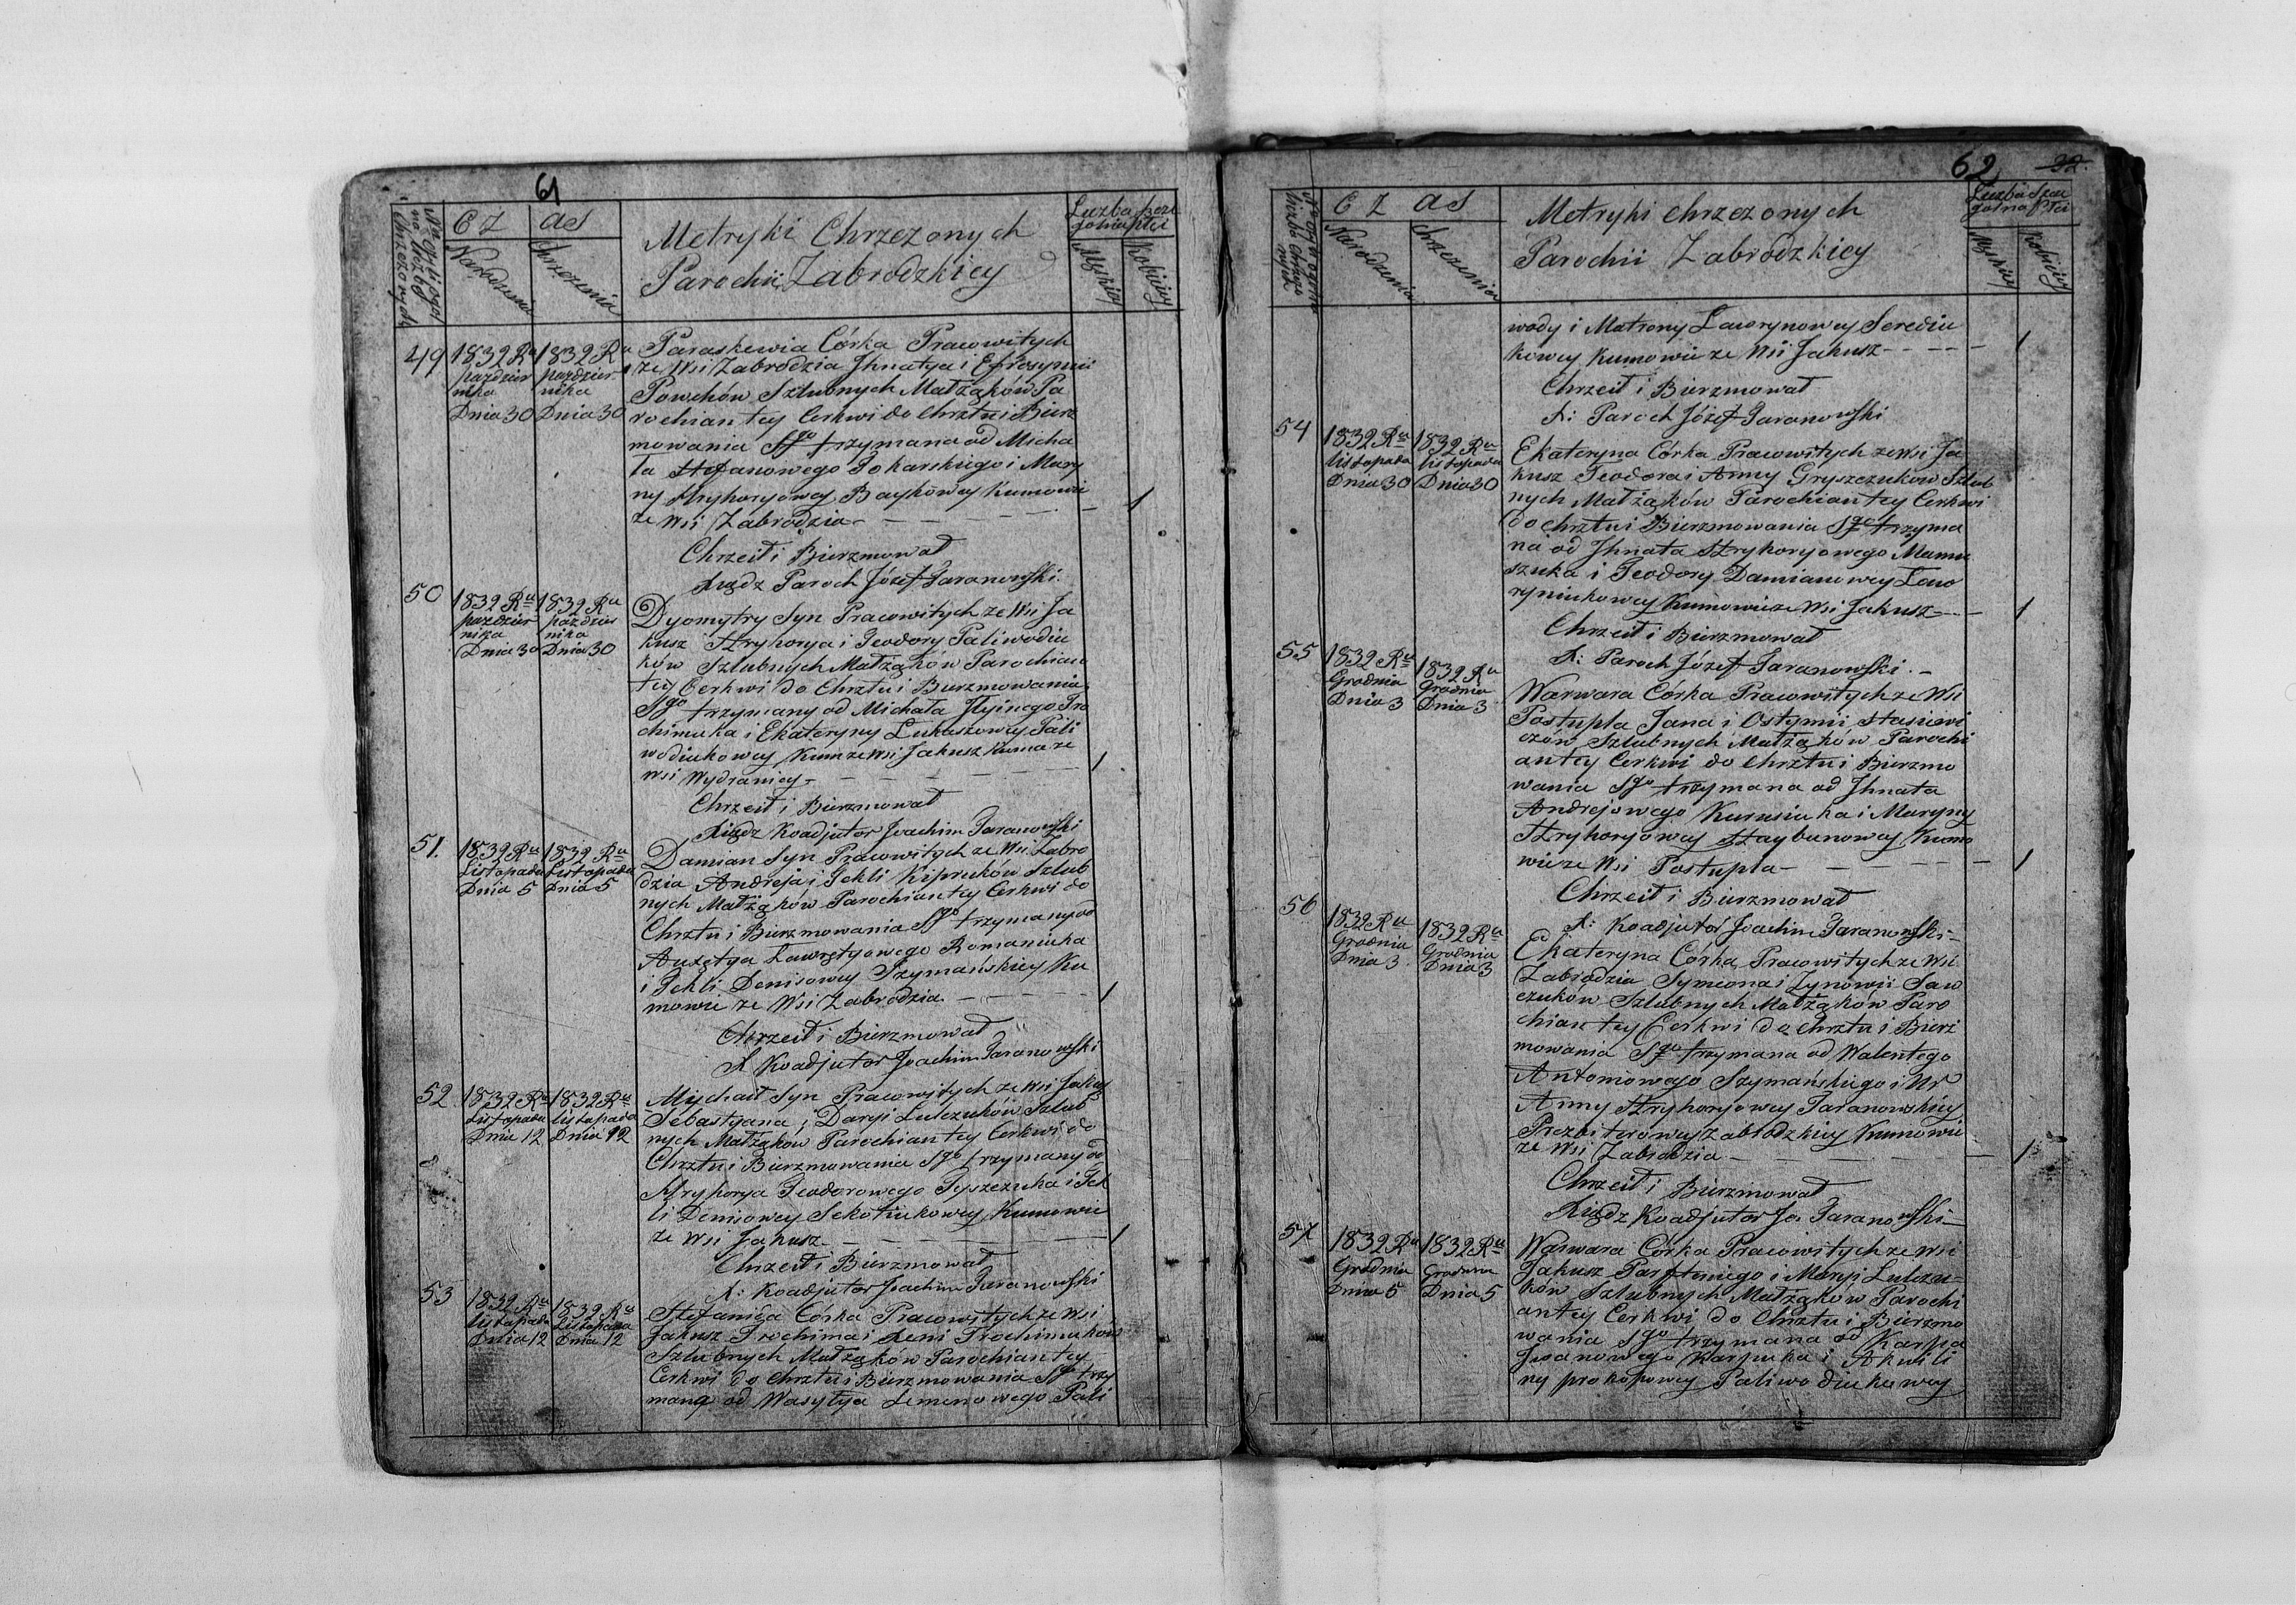 61
Cz as
Narodzenia
Chrzczenia
Metryki Chrzczonych
Parochii Zabrodzkiey
Liczba szcze
gólna płci
Męzkiey
Kobiecey
49
1832 Ru
pazdzier
nika
Dnia 30
1832 Ru
pazdzier
nika
Dnia 30
Paraskewia Córka Pracowitych
ze Wsi Zabrodzia Jhnatya i Efrosynii
Szlubnych Małżąków Pa
rochian tey Cerkwi do Chrztu i Bierz
mowania Sgo trzymana od Micha
ła Stefanowego Tokarskiego i Mary
ny Hryhoryowey Baykowey Kumowie
ze Wsi Zabrodzia
1
Chrzcił i Bierzmował
Xiądz Paroch Józef Taranowski
50
1832 Ru
pazdzier
nika
Dnia 30
1832 Ru
pazdzier
nika
Dnia 30
Dyomytry Syn Pracowitych ze Wsi Ja
kusz Hryhorya i Teodory Paliwodiu
ków Szlubnych Małżąków Parochian
tey Cerkwi do Chrztu i Bierzmowania
Sgo trzymany od Michała Jlyinego Tro
chimuka i Ekateryny Lukaszowey Pali
wodiukowey Kum ze Wsi Jakusz Kuma ze
Wsi Wydranicy
1
Chrzcił i Bierzmował
Xiądz Koadjutor Joachim Taranowski
51.
1832 Ru
Listopada
Dnia 5
1832 Ru
Listopada
Dnia 5
Damian Syn Pracowitych ze Wsi Zabro
dzia Andreja i Tekli Kipruków Szlub
nych Małżąków Parochian tey Cerkwi do
Chrztu i Bierzmowania Sgo trzymany od
Romaniuka
i Tekli Denisowey Szymańskiey Ku
mowie ze Wsi Zabrodzia
1
Chrzcił i Bierzmował
X Koadjutor Joachim Taranowski
52
1832 Ru
Listopada
Dnia 12
1832 Ru
listopada
Dnia 12
Mychaił Syn Pracowitych ze Wsi Jakusz
Sebastyana i Daryi Lulczuków Szlub
nych Małżąków Parochian tey Cerkwi do
Chrztu i Bierzmowania Sgo trzymany od
Hryhorya Teodorowego Tyszczuka i Tek
li Denisowey Sekotiukowey Kumowie
ze Wsi Jakusz
1
Chrzcił i Bierzmował
X: Koadjutor Joachim Taranowski
53
1832 Ru
listopada
Dnia 12
1832 Ru
Listopada
Dnia 12
Stefanida Córka Pracowitych ze Wsi
Jakusz Trochima i Trochimuków
Szlubnych Małżąków Parochian tey
Cerkwi do Chrztu i Bierzmowania Sgo trzy
maną od Wasylya Semenowego Pali
62
32.
Cz as
Narodzenia
Chrzczenia
Metryki Chrzczonych
Parochii Zabrodzkiey
Liczba Szcze
gólna Płci
Męzkiey
Kobiecey
wody i Matrony Ławrynowey Serediu
kowey Kumowie ze Wsi Jakusz
1
Chrzcił i Bierzmował
X: Paroch Józef Taranowski
54
1832 Ru
listopada
Dnia 30
1832 Ru
listopada
Dnia 30
Ekateryna Córka Pracowitych ze Wsi Ja
kusz Teodora i Anny Gryszczuków Szlub
nych Małżąków Parochian tey Cerkwi
do Chrztu i Bierzmowania Sgo trzyma
na od Jhnata Hryhoryowego Mamu
szuka i Teodory Damianowey Ławo
ryniukowey Kumowie ze Wsi Jakusz
1
Chrzcił i Bierzmował
X: Paroch Józef Taranowski.
55
1832 Ru
Grodnia
Dnia 3
1832 Ru
Grodnia
Dnia 3
Warwara Córka Pracowitych ze Wsi
Postupla Jana i Ostymii Stasiewi
czów Szlubnych Małżąków Parochi
an tey Cerkwi do Chrztu i Bierzmo
wania Sgo trzymana od Jhnata
Andrejowego i Maryny
Hryhoryowey Kumo
wie ze Wsi Postupla
1
Chrzcił i Bierzmował
X: Koadjutor Joachim Taranowski
56
1832 Ru
Grodnia
Dnia 3
1832 Ru
Grodnia
Dnia 3
Ekateryna Córka Pracowitych ze Wsi
Zabrodzia Symeona i Zynowii Saw
czuków Szlubnych Małżąków Paro
chian tey Cerkwi do Chrztu i Bierz
mowania Sgo trzymana od Walentego
Antoniowego Szymańskiego i
Anny Hryhoryowey Taranowskiey
Prezbiterowey Zabrodzkiey Kumowie
ze Wsi Zabrodzia
1
Chrzcił i Bierzmował
Xiądz Koadjutor Jo. Taranowski
57
1832 Ru
Grodnia
Dnia 5
1832 Ru
Grodnia
Dnia 5
Warwara Córka Pracowitych ze Wsi
Jakusz Parfteniego i Maryi Lulczu=
ków Szlubnych Małżąków Parochi
an tey Cerkwi do Chrztu i Bierzmo
wania Sgo trzymana od Karpa
Jwanowego Karpuka i Akuili
ny prokopowey Paliwodiukowey